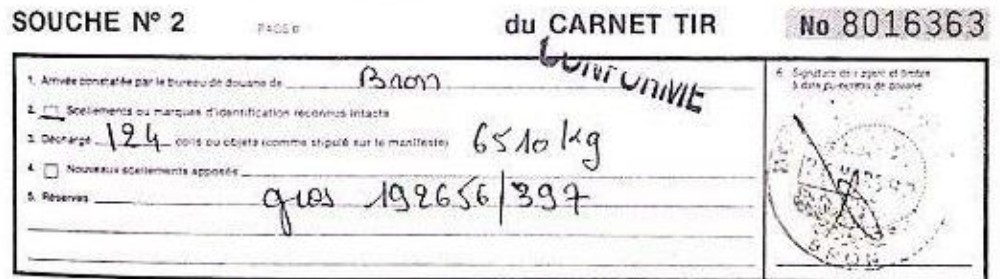 SOUCHE N° 2 PAGE du CARNET TIR No 8016363
CONFORME
1. Arrivée constatée par le bureau de douane de Bron
2. Scellements ou marques d'identification reconnus intacts
3. Déchargé 124 colis ou objets (comme stipulé sur le manifeste) 6510 kg
4. Nouveaux scellements apposés
5. Réserves gros 192656/397
6. Signature de l'agent et timbre à date du bureau de douane
BRON